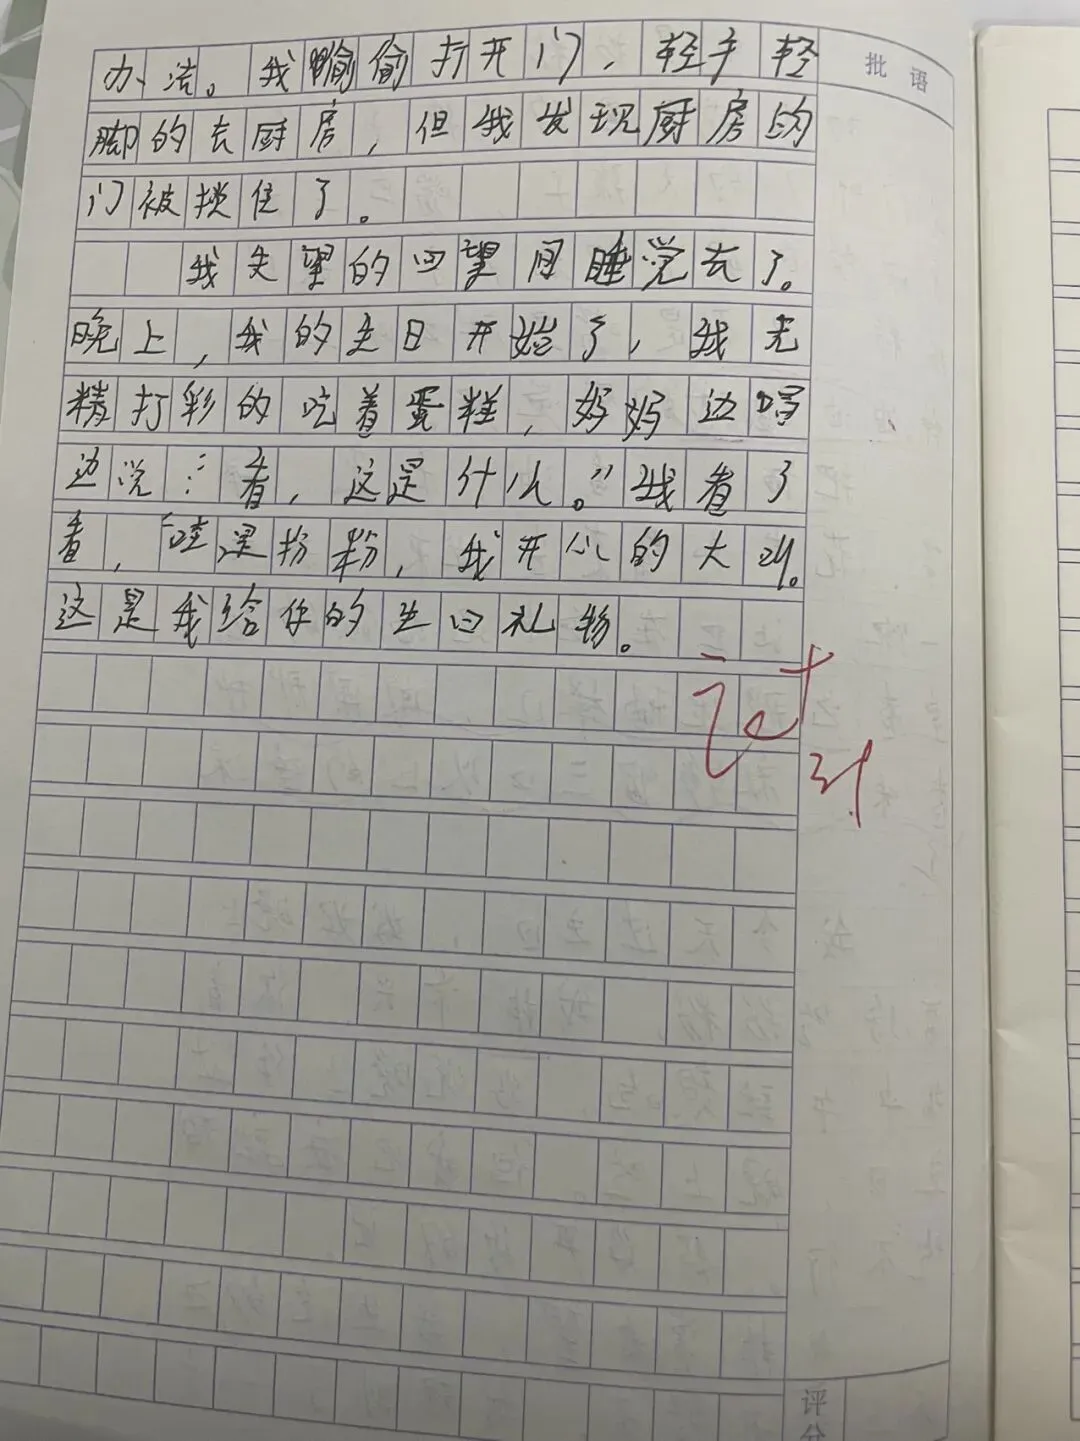 批语
办法。我偷偷打开门，轻手轻
脚的去厨房，但我发现厨房的
门被锁住了。
我失望的回望间睡觉去了。
晚上，我的生日开始了，我无
精打彩的吃着蛋糕，妈妈边唱
边说：看，这是什么。”我看了
看，“哇是粉粉，我开心的大叫。
这是我给你的生日礼物。
评分